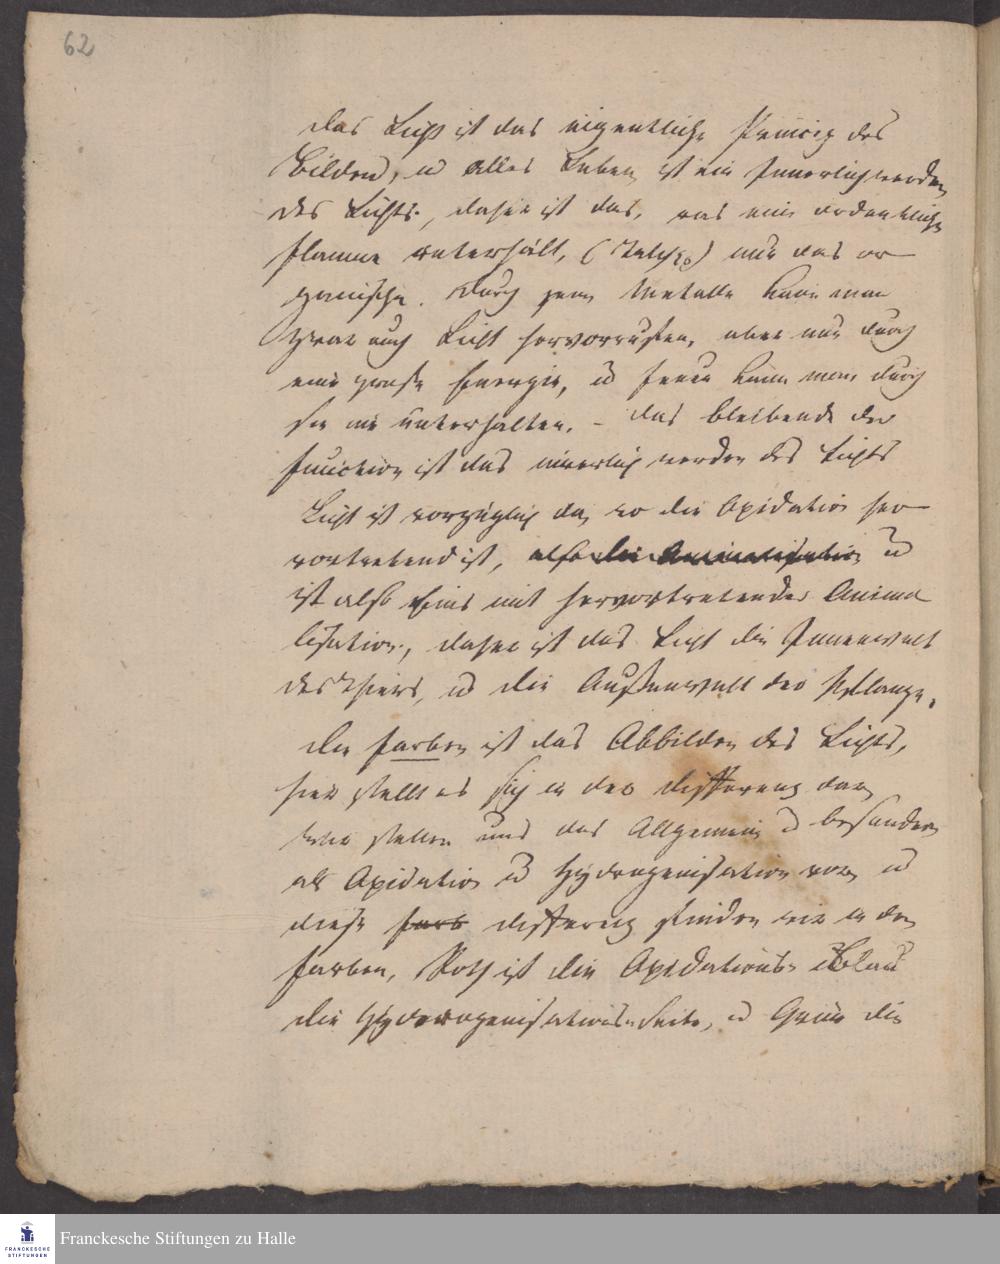 62
Das Licht ist das eigentliche Princip des
Bildens, u alles Leben ist ein Innerlichwerden
des Lichts, daher ist das, was eine ordentliche
Flamme unterhält, nur das or
ganische. Durch Metalle kann man
zwar auch Licht hervorrufen, aber nur durch
eine große Energie, u Feuer kann man durch
sie nie unterhalten. – Das bleibende der
Function ist das innerlich werden des Lichts
Licht ist vorzüglich da, wo die Oxidation her
vortretend ist, also die Animalisation u
ist also Eins mit hervortretender Anima
lisation, daher ist das Licht die Innenwelt
des Thiers, u die Außenwelt der Pflanze.
Die Farben ist das Abbilden des Lichts,
hier stellt es sich in der Differenz dar
wir stellen uns das Allgemeine u besondere
als Oxidation u Hydrogenisation vor, u
diese Farb Differenz finden wir in den
Farben, Roth ist die Oxidations- Blau
die Hydrogenisations-Seite, u Grün die
Franckesche Stiftungen zu Halle
FRANCKESCHE
STIFTUNGEN